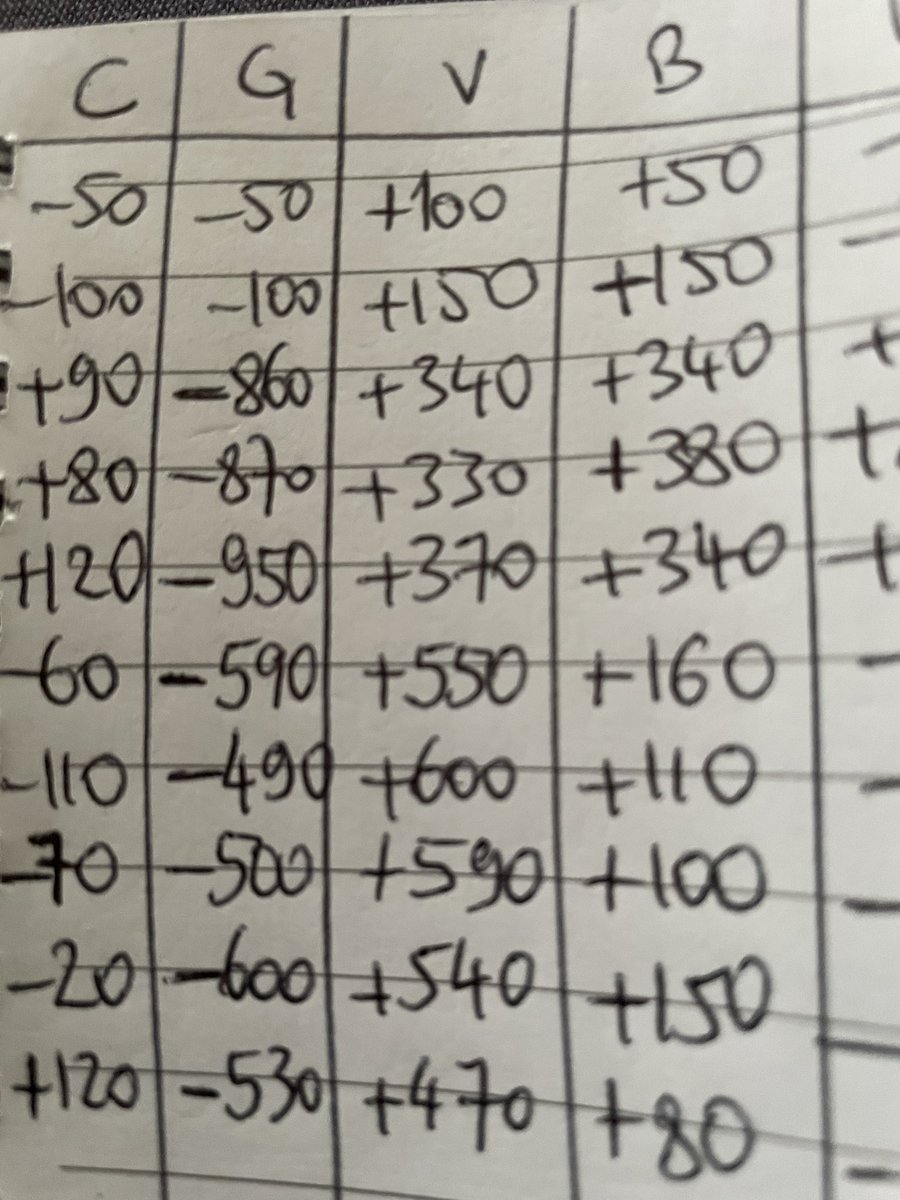 C G V B
-50 -50 +100 +50
-100 -100 +150 +150
+90 -860 +340 +340
+80 -870 +330 +380
+120 -950 +370 +340
-60 -590 +550 +160
-110 -490 +600 +110
-70 -500 +590 +100
-20 -600 +540 +150
+120 -530 +470 +80